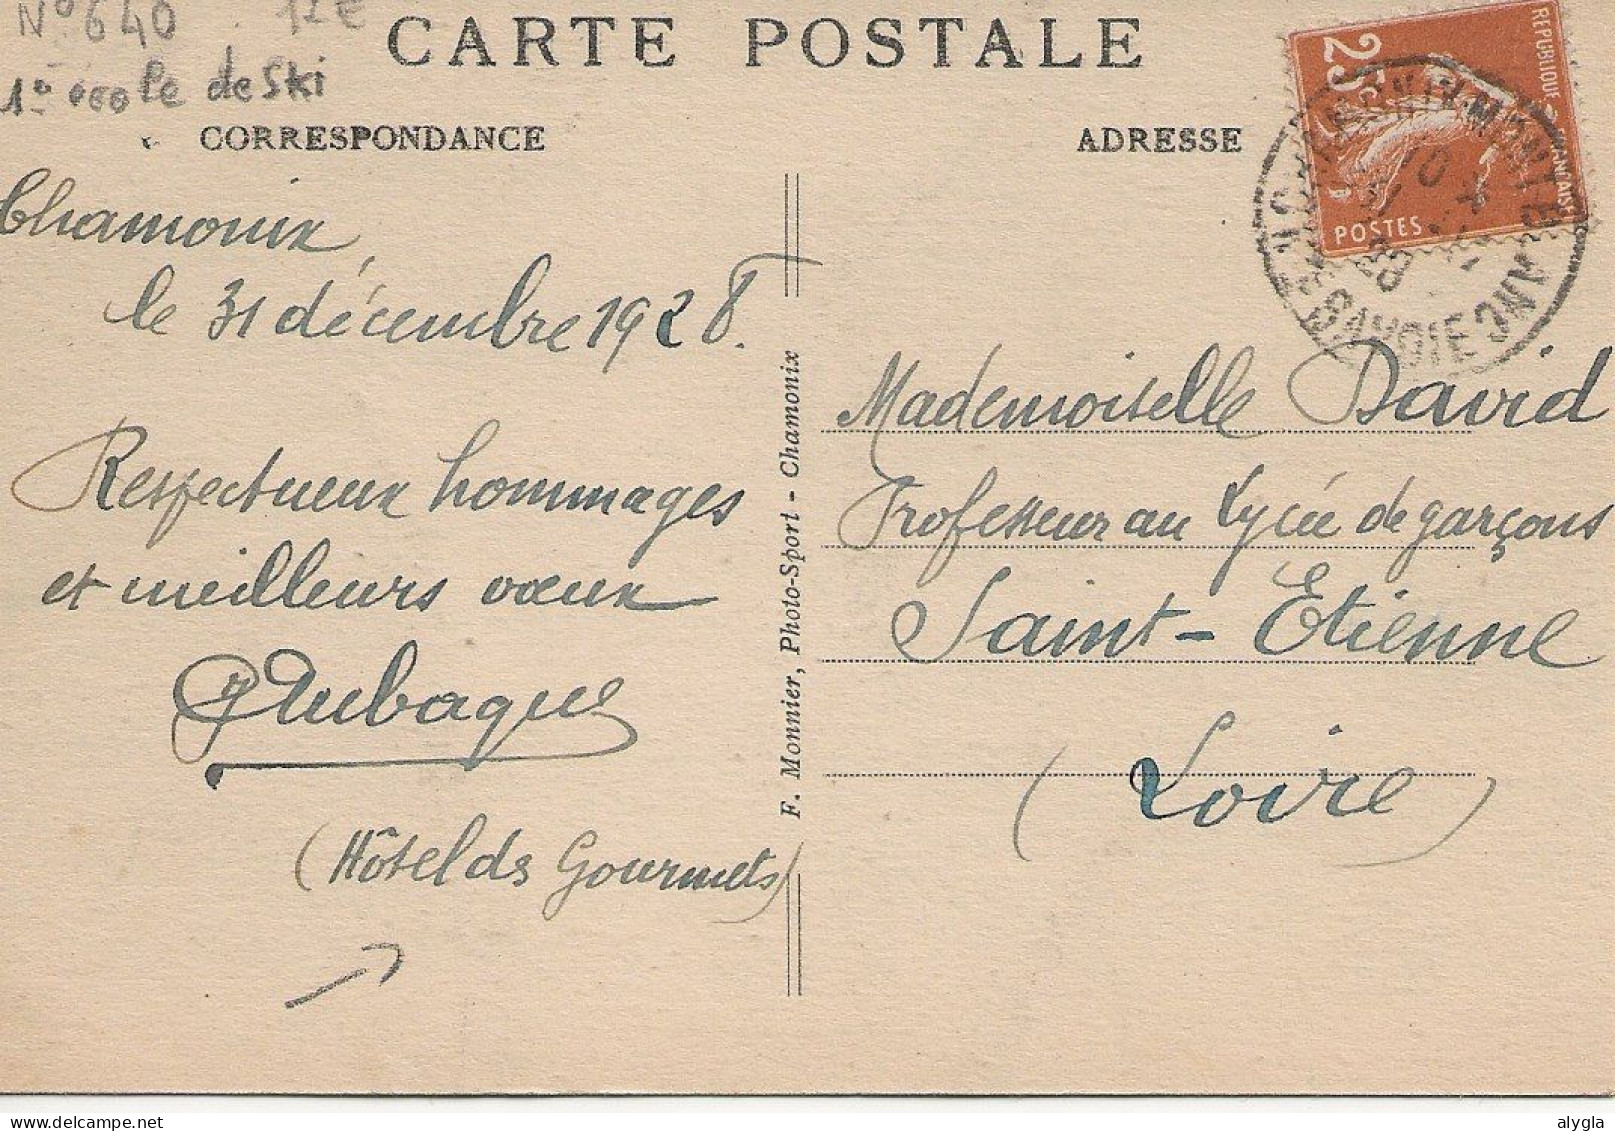 N° 640 12E
1° ecole de Ski
CARTE POSTALE
CORRESPONDANCE
ADRESSE
RÉPUBLIQUE FRANÇAISE
25c
POSTES
CHAMONIX-MONT-BLANC
HTE SAVOIE
Chamonix,
le 31 décembre 1928.
Respectueux hommages
et meilleurs vœux
Aubaque
(Hôtel des Gourmets)
F. Monnier, Photo-Sport - Chamonix
Mademoiselle David
Professeur au Lycée de garçons
Saint-Etienne
(Loire)
alygla